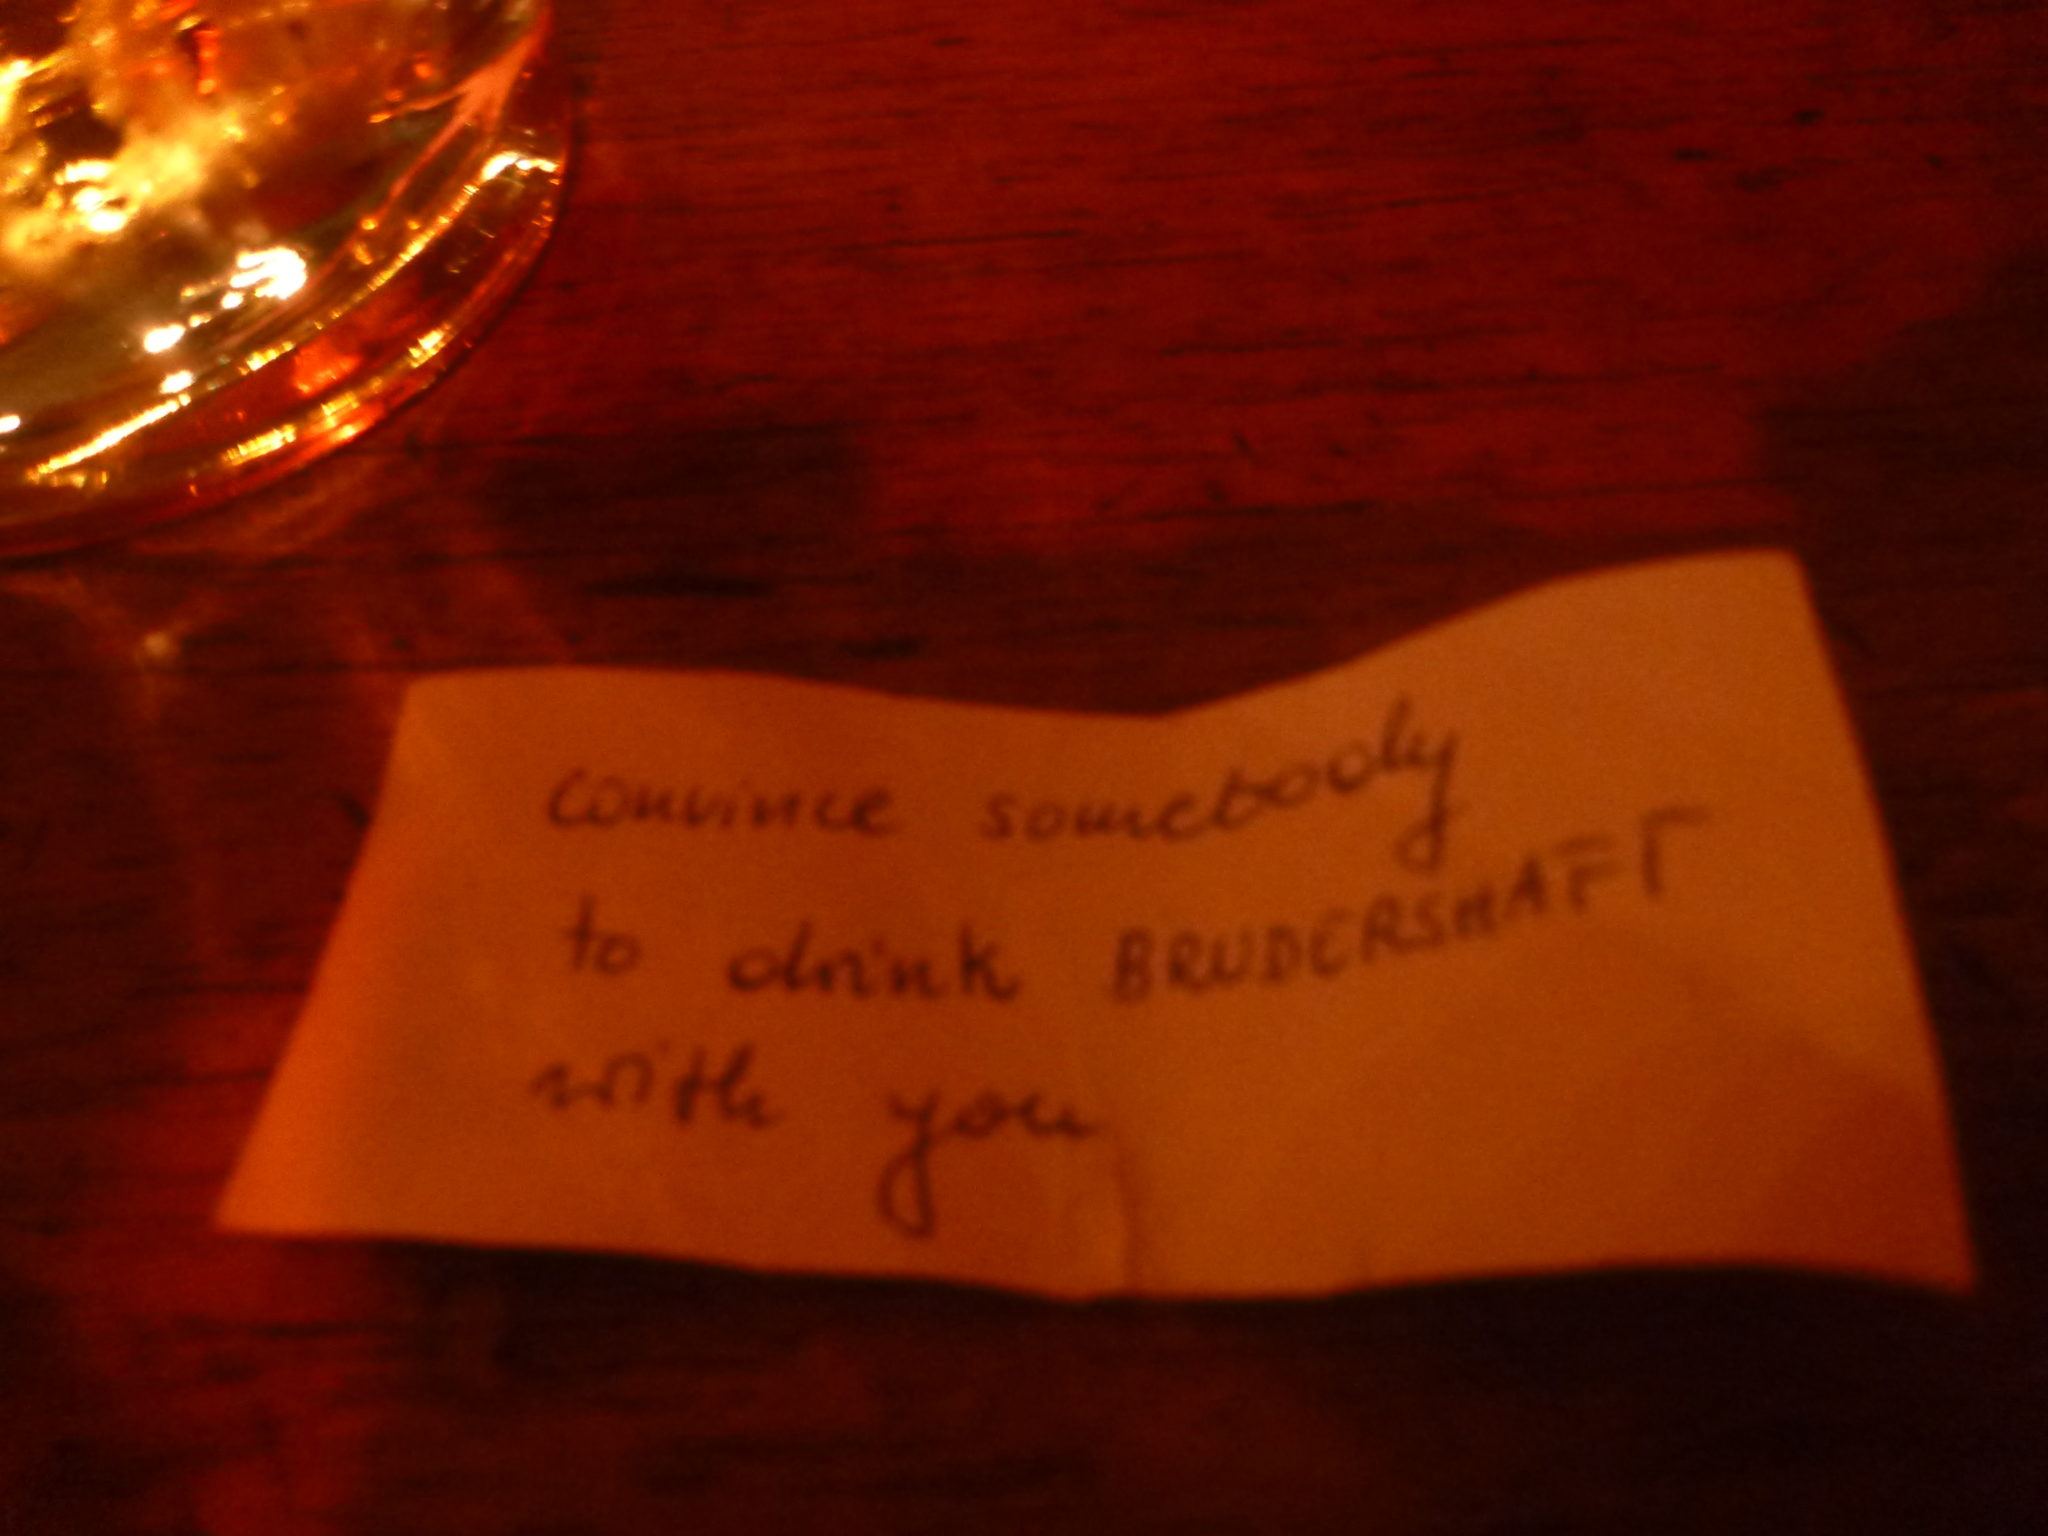 convince somebody
to drink BRUDERSHAFT
with you